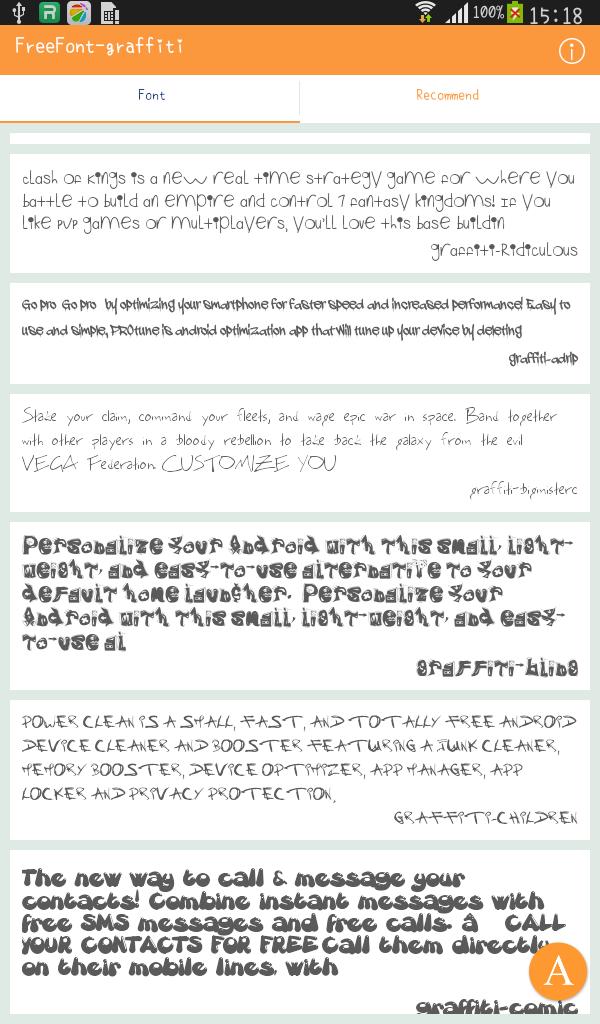 100% 15:18
FreeFont-graffiti
Font
Recommend
clash of kings is a new real time strategy game for where you
battle to build an empire and control 7 fantasy kingdoms! If you
like pvp games or multiplayers, you'll love this base buildin
graffiti-Ridiculous
Go pro Go pro by optimizing your smartphone for faster speed and increased performance! Easy to
use and simple, PROtune is android optimization app that will tune up your device by deleting
graffiti-adrip
Stake your claim, command your fleets, and wage epic war in space. Band together
with other players in a bloody rebellion to take back the galaxy from the evil
VEGA Federation. CUSTOMIZE YOU
graffiti-bigmisterc
Personalize your Android with this small, light-
weight, and easy-to-use alternative to your
default home launcher. Personalize your
Android with this small, light-weight, and easy-
to-use al
graffiti-bling
POWER CLEAN IS A SMALL, FAST, AND TOTALLY FREE ANDROID
DEVICE CLEANER AND BOOSTER FEATURING A JUNK CLEANER,
MEMORY BOOSTER, DEVICE OPTIMIZER, APP MANAGER, APP
LOCKER AND PRIVACY PROTECTION,
GRAFFITI-CHILDREN
The new way to call & message your
contacts! Combine instant messages with
free SMS messages and free calls. â CALL
YOUR CONTACTS FOR FREE Call them directly
on their mobile lines, with
A
graffiti-comic